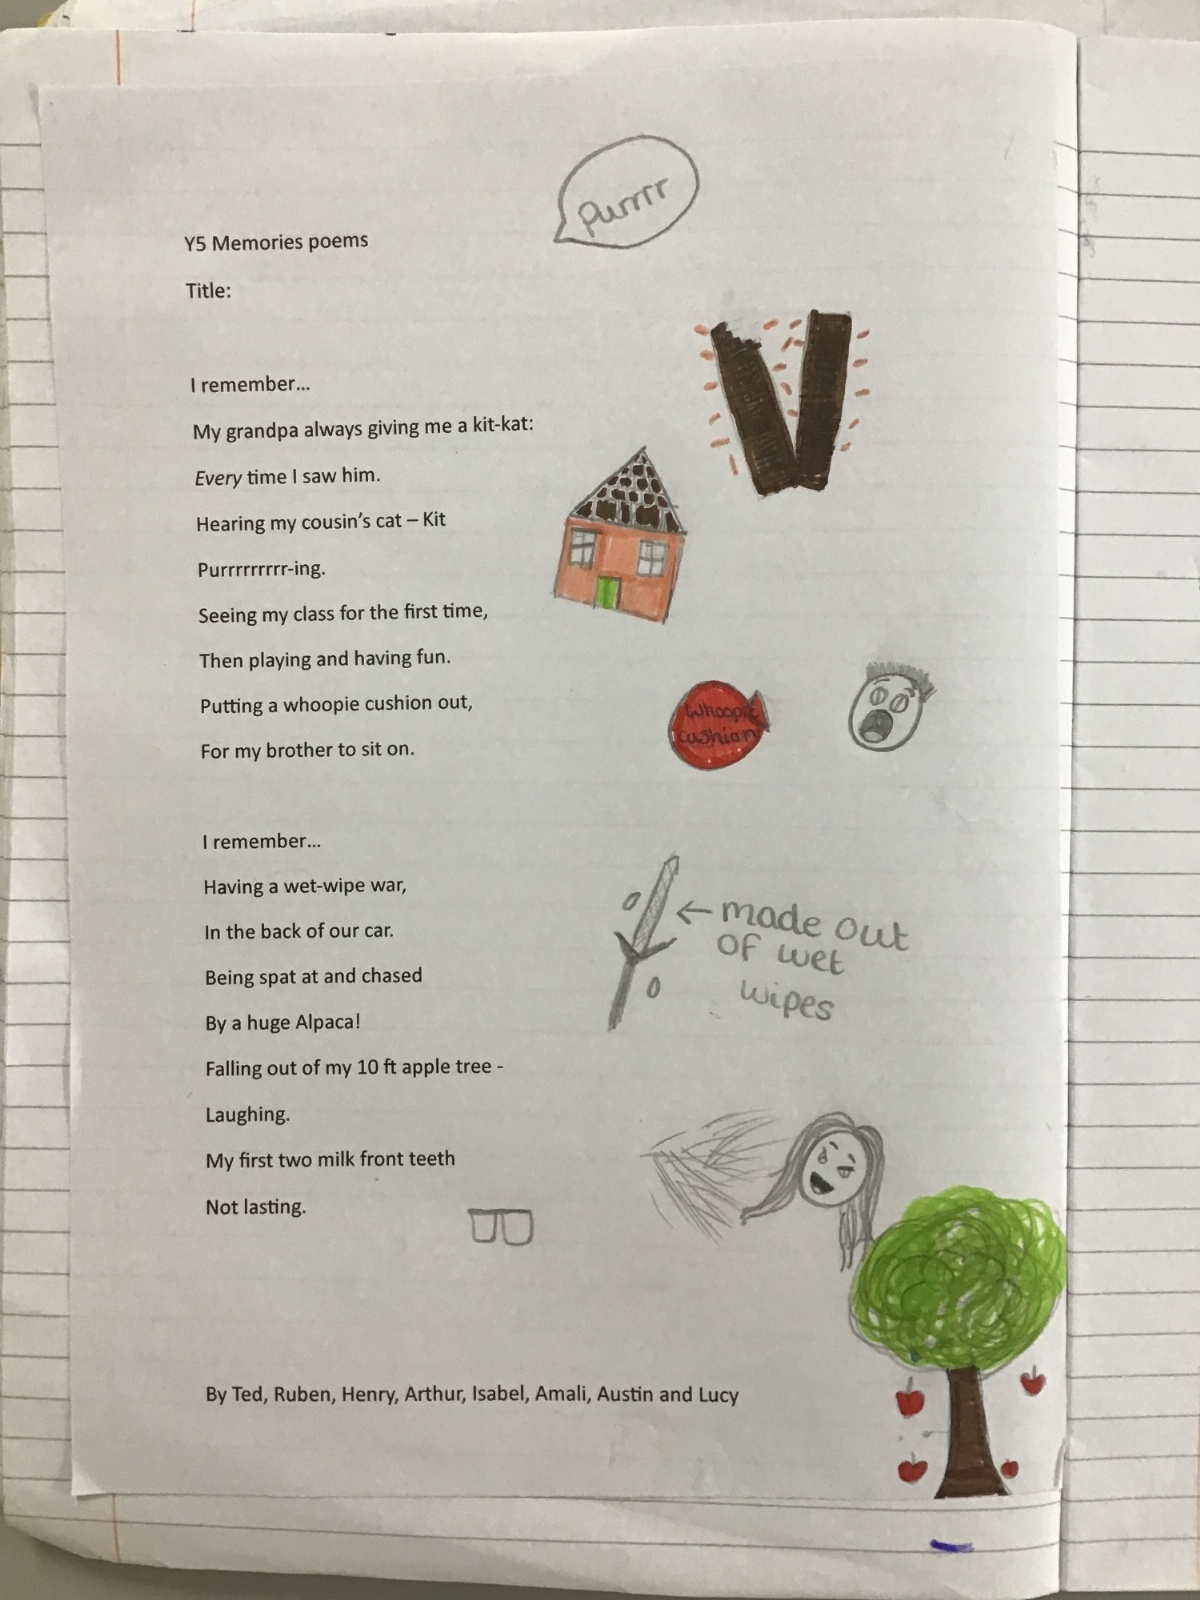 purrrr
Y5 Memories poems
Title:
I remember...
My grandpa always giving me a kit-kat:
Every time I saw him.
Hearing my cousin's cat – Kit
Purrrrrrrrr-ing.
Seeing my class for the first time,
Then playing and having fun.
Putting a whoopie cushion out,
For my brother to sit on.
Whoopie
cushion
I remember...
Having a wet-wipe war,
In the back of our car.
Being spat at and chased
By a huge Alpaca!
Falling out of my 10 ft apple tree -
Laughing.
My first two milk front teeth
Not lasting.
← made out
of wet
wipes
By Ted, Ruben, Henry, Arthur, Isabel, Amali, Austin and Lucy